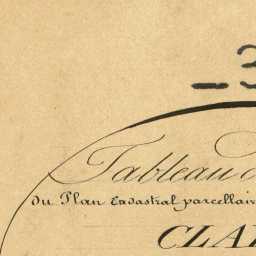 3
Tableau
du Plan Cadastral parcellair
CLA